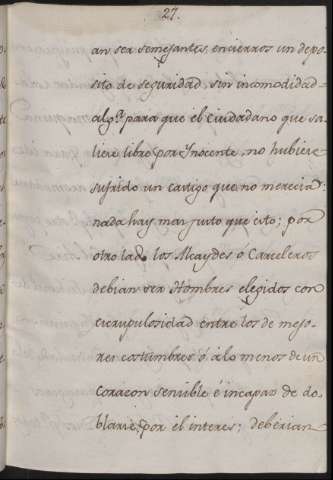 27.
an ser semejantes encierros un depo-
sito de seguridad, sin incomodidad
algª para que el ciudadano que sa-
liere libre por Ynocente, no hubiere
sufrido un castigo que no merecia:
nada hay mas justo que esto; por
otro lado los Alcaydes ó Carceleros
debian ser Hombres elegidos con
escrupulosidad entre los de mejo-
res costumbres ó alo menos de un
corazon sensible é incapaz de do-
blarse por el interes; deberian